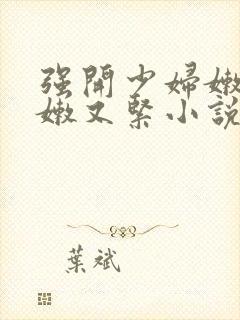 强開少婦嫩
嫩又緊小說
葉斌